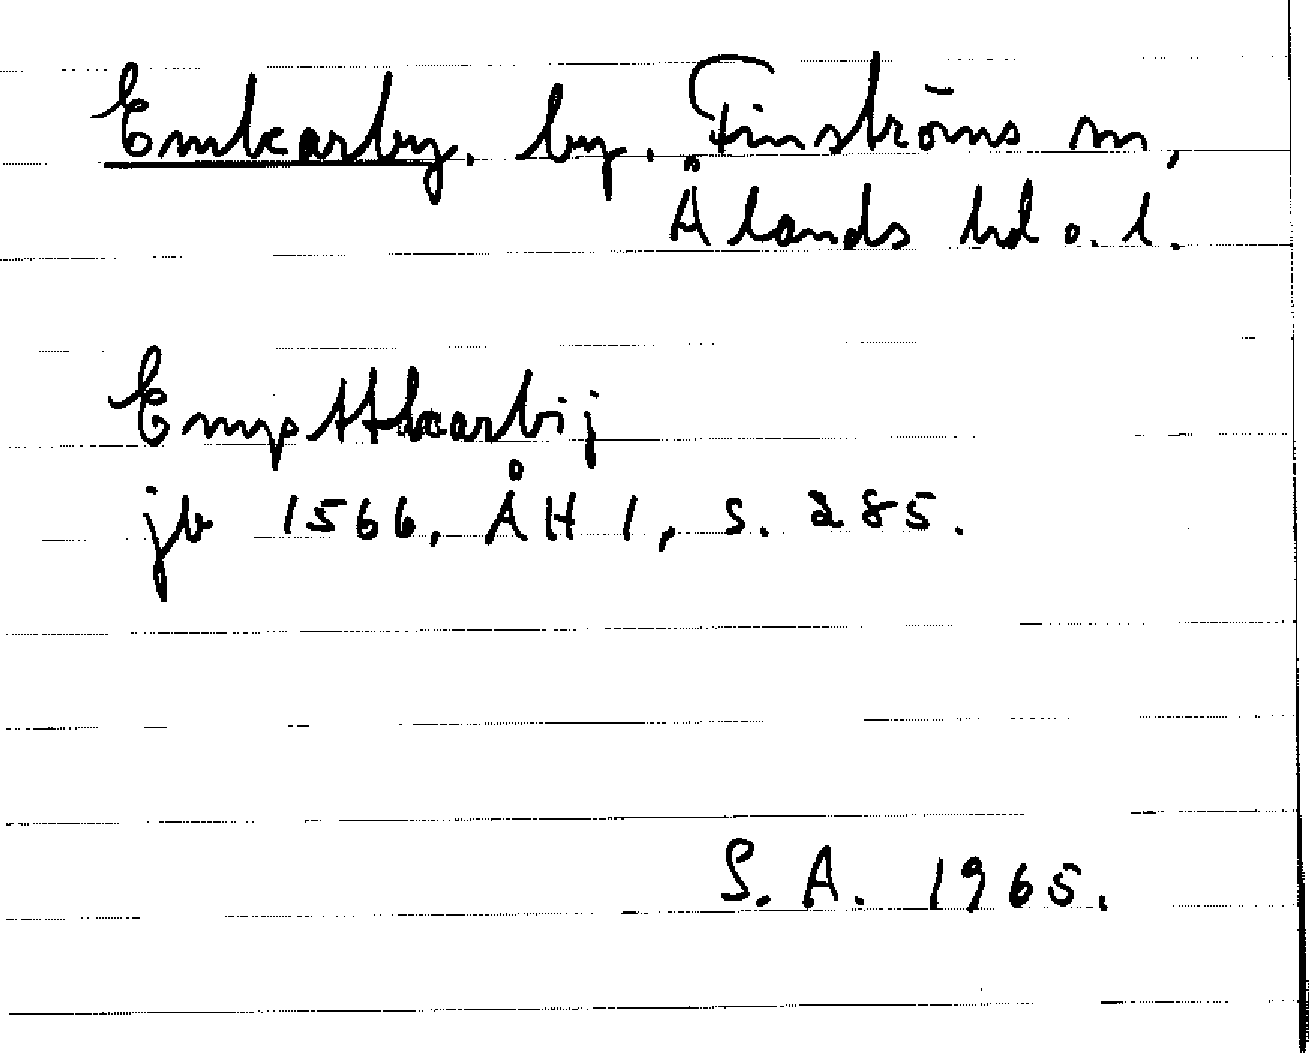 Emkarby, by, Finströms sn,
Ålands hd o. l.
Empsttkarbij
jb 1566, ÅH 1, s. 285.
S. A. 1965.